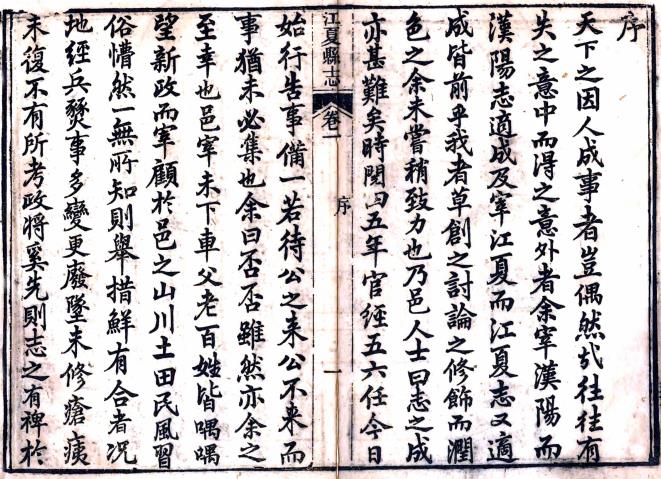 序
天下之因人成事者豈偶然哉往往有
失之意中而得之意外者余宰漢陽而
漢陽志適成及宰江夏而江夏志又適
成皆前乎我者草創之討論之修飾而潤
色之余未嘗稍致力也乃邑人士曰志之成
亦甚難矣時閱四五年官經五六任今日
江夏縣志 卷一 序 一
始行告事備一若待公之来公不来而
事猶未必集也余曰否否雖然亦余之
至幸也邑宰未下車父老百姓皆喁喁
望新政而宰顧於邑之山川土田民風習
俗懵然一無所知則舉措鮮有合者况
地經兵燹事多變更廢墜未修瘡痍
未復不有所考政將奚先則志之有裨於